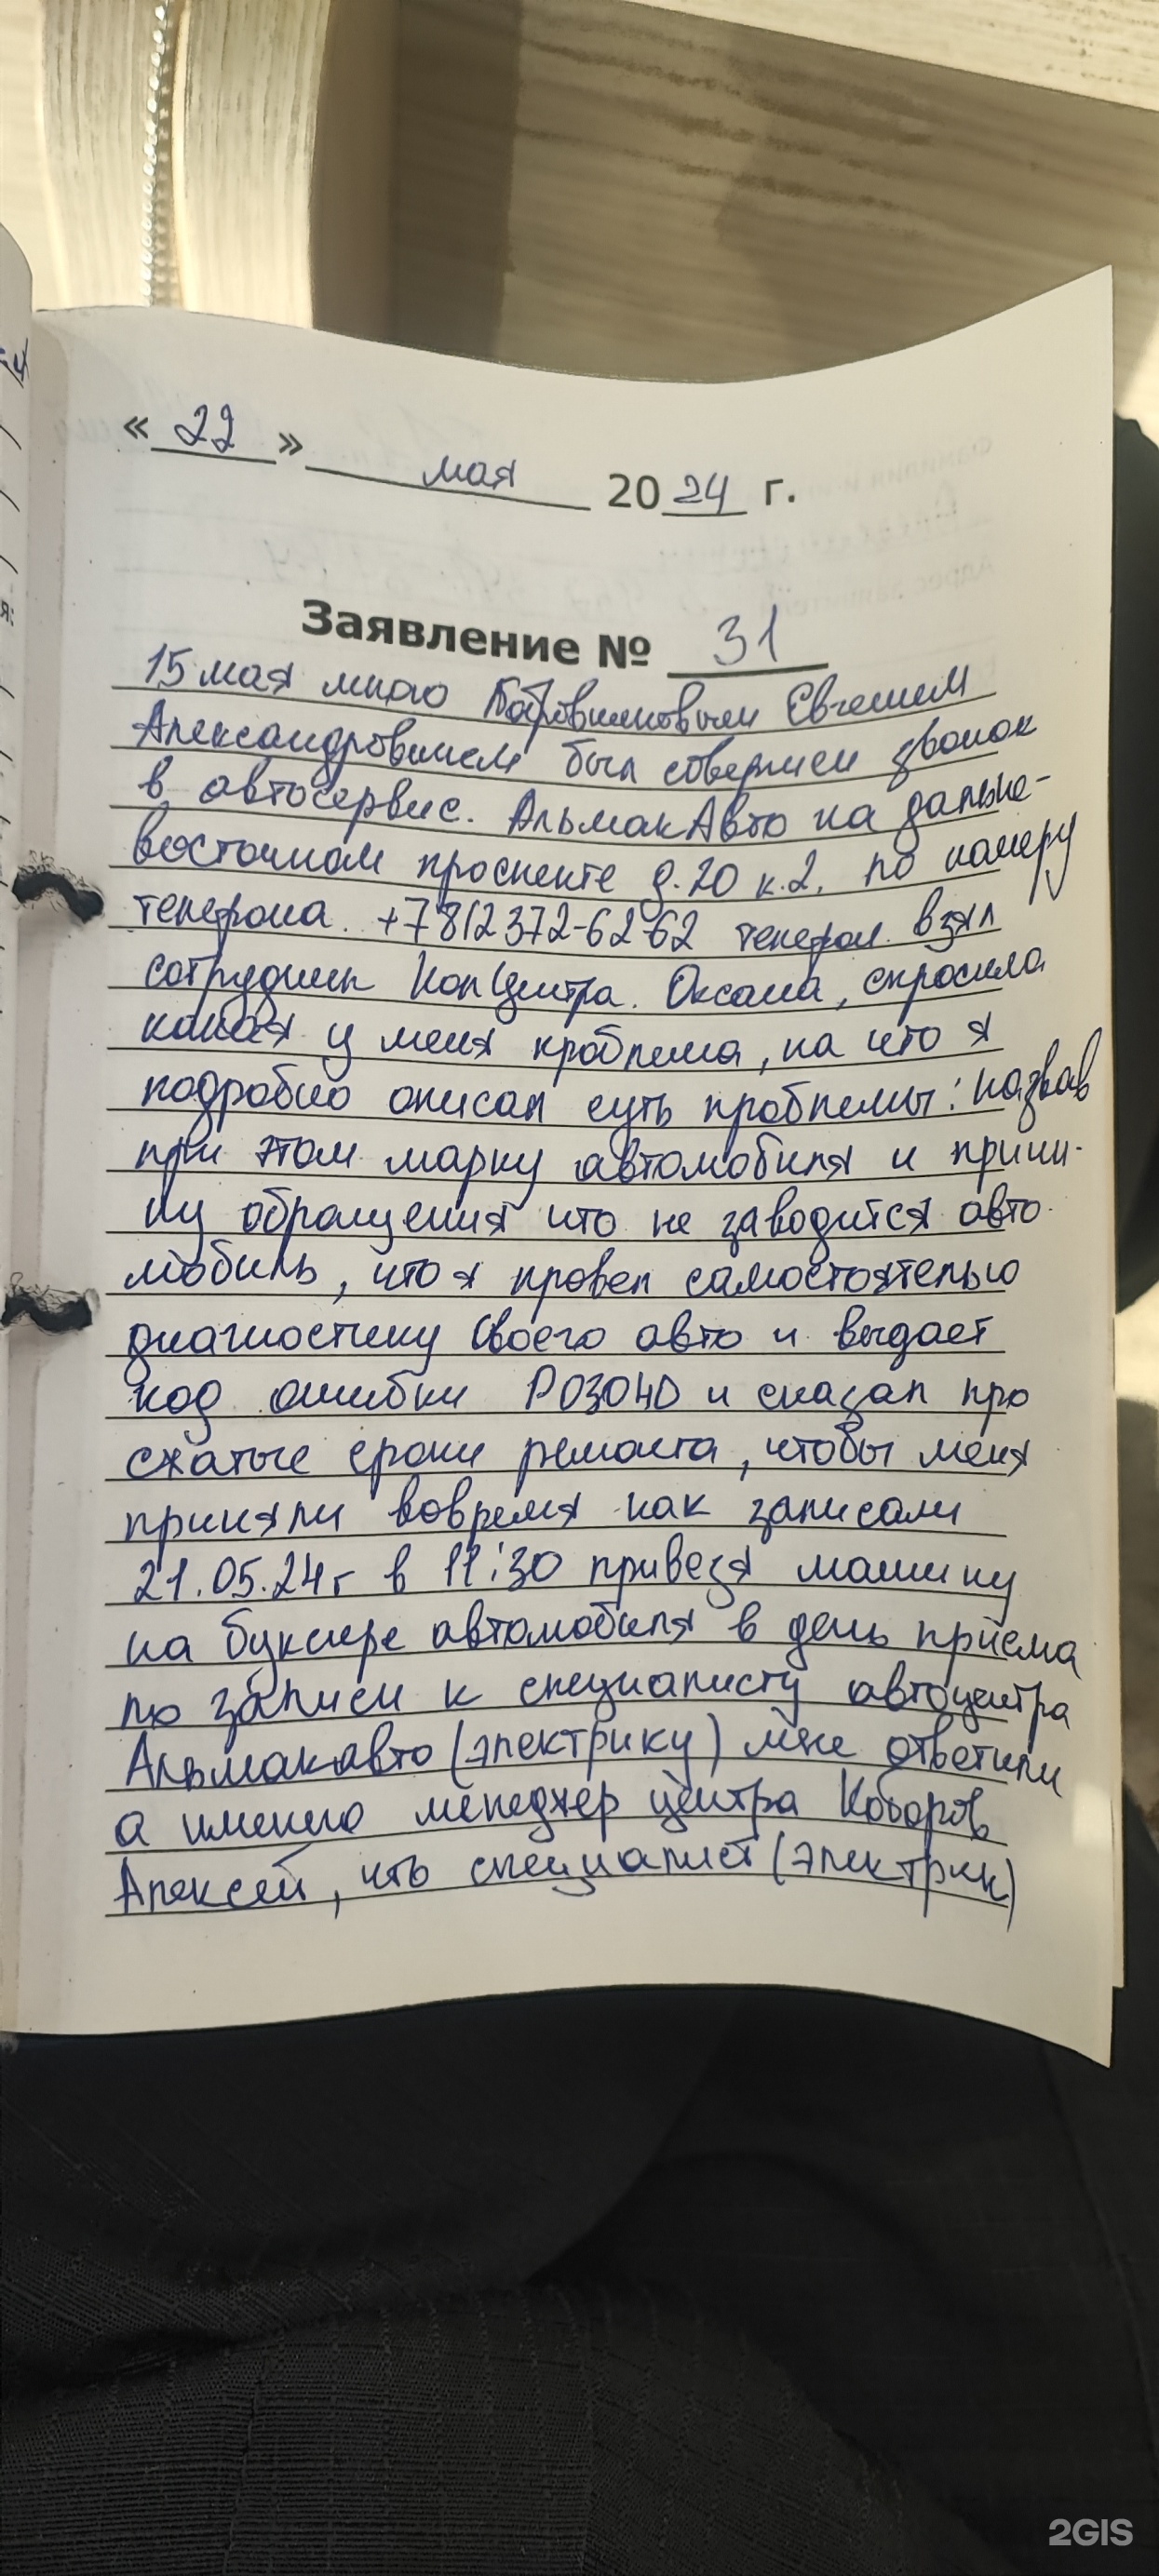 « 22 » мая 2024 г.
Заявление № 31
15 мая мною Евгением
Александровичем был совершен звонок
в автосервис. АльмакАвто на дальне-
восточном проспекте д.20 к.2. по номеру
телефона. +7812372-62-62 телефон взял
сотрудник КолЦентра. Оксана, спросила
какая у меня проблема, на что я
подробно описал суть проблемы: назвав
при этом марку автомобиля и причи-
ну обращения что не заводится авто-
мобиль, что я провел самостоятельно
диагностику своего авто и выдает
код ошибки и сказал про
сжатые сроки ремонта, чтобы меня
приняли вовремя как записали
21.05.24г в 11:30 привезя машину
на буксире автомобиля в день приёма
по записи к специалисту автоцентра
Альмакавто (электрику) мне ответили
а именно менеджер центра
Алексей, что специалист (электрик)
2GIS